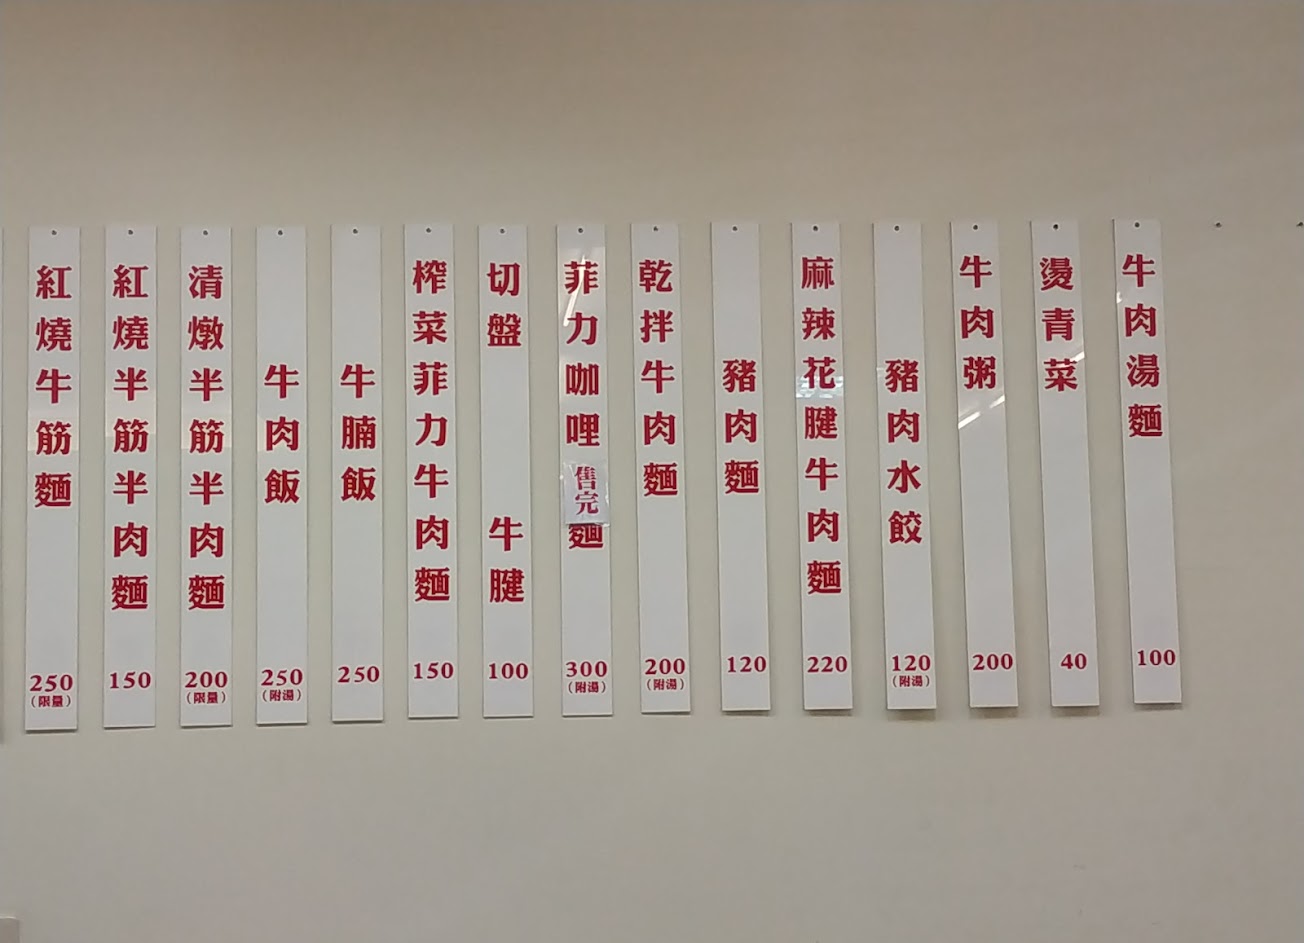 牛肉湯麵
100
燙青菜
40
牛肉粥
200
豬肉水餃
120
(附湯)
麻辣花腱牛肉麵
220
豬肉麵
120
乾拌牛肉麵
200
(附湯)
菲力咖哩
售完
麵
300
(附湯)
切盤 牛腱
100
榨菜菲力牛肉麵
150
牛腩飯
250
牛肉飯
250
(附湯)
清燉半筋半肉麵
200
(限量)
紅燒半筋半肉麵
150
紅燒牛筋麵
250
(限量)